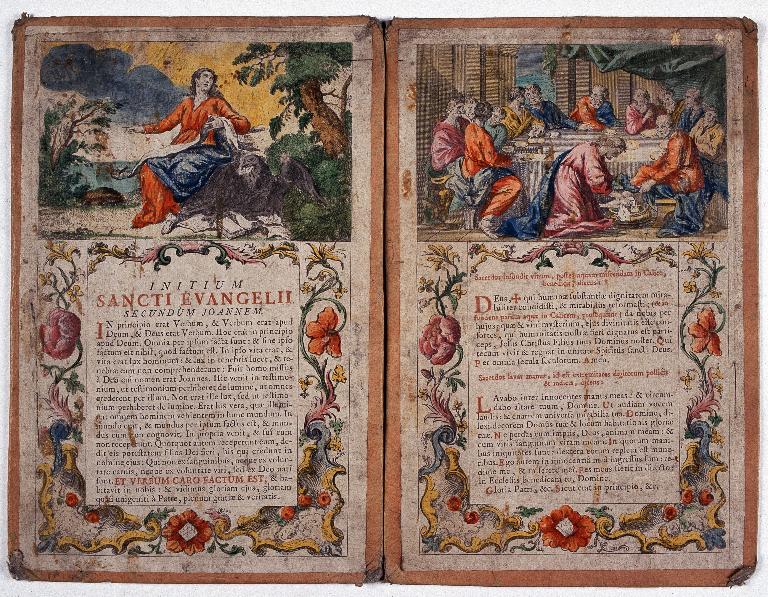 INITIUM
SANCTI EVANGELII
SECUNDUM JOANNEM.
IN principio erat Verbum, & Verbum erat apud
Deum, & Deus erat Verbum. Hoc erat in principio
apud Deum. Omnia per ipsum facta sunt: & sine ipso
factum est nihil, quod factum est. In ipso vita erat, &
vita erat lux hominum: & lux in tenebris lucet, & te-
nebræ eum non comprehenderunt. Fuit homo missus
à Deo cui nomen erat Joannes. Hic venit in testimo-
nium, ut testimonium perhiberet de lumine, ut omnes
crederent per illum. Non erat ille lux, sed ut testimo-
nium perhiberet de lumine. Erat lux vera, quæ illumi-
nat omnem hominem venientem in hunc mundum. In
mundo erat, & mundus per ipsum factus est, & mun-
dus eum non cognovit. In propria venit, & sui eum
non receperunt. Quotquot autem receperunt eum, de-
dit eis potestatem filios Dei fieri, his qui credunt in
nomine ejus: Qui non ex sanguinibus, neque ex volun-
tate carnis, neque ex voluntate viri, sed ex Deo nati
sunt. ET VERBUM CARO FACTUM EST, & ha-
bitavit in nobis: & vidimus gloriam ejus, gloriam
quasi unigeniti à Patre, plenum gratiæ & veritatis.
Sacerdos infundit vinum, postea aquam
benedicit, dicens:
Deus, + qui humanæ substantiæ dignitatem mira-
biliter condidisti, & mirabilius reformasti:
aquæ in Calicem, da nobis per
hujus aquæ & vini mysterium, ejus divinitatis esse con-
sortes, qui humanitatis nostræ fieri dignatus est parti-
ceps, Jesus Christus Filius tuus Dominus noster. Qui
tecum vivit & regnat in unitate Spiritus Sancti Deus.
Per omnia sæcula sæculorum. Amen.
Sacerdos lavat manus, id est extremitates digitorum pollicis
& indicis, dicens:
Lavabo inter innocentes manus meas: & circum-
dabo altare tuum, Domine. Ut audiam vocem
laudis: & enarrem universa mirabilia tua. Domine, di-
lexi decorem Domus tuæ & locum habitationis gloriæ
tuæ. Ne perdas cum impiis, Deus, animam meam: &
cum viris sanguinum vitam meam. In quorum mani-
bus iniquitates sunt: dextera eorum repleta est mune-
ribus. Ego autem in innocentia mea ingressus sum: redi-
me me, & miserere mei. Pes meus stetit in directo:
in Ecclesiis benedicam te, Domine.
Gloria Patri, &c. Sicut erat in principio, &c.